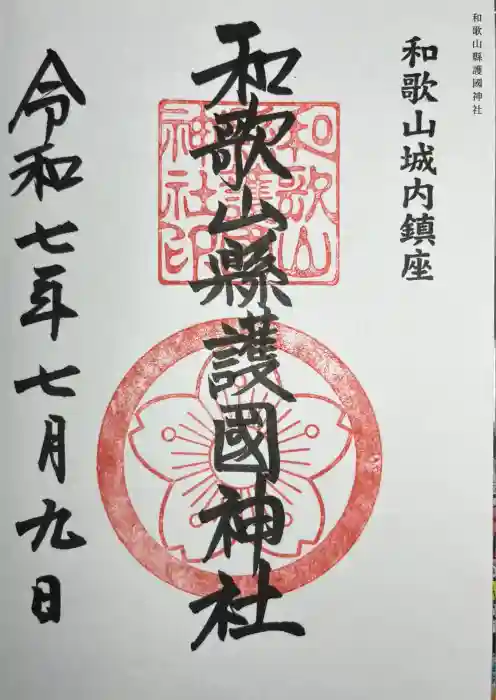 和歌山縣護國神社
和歌山城内鎮座
和歌山縣護國神社
和歌山縣護國神社印
令和七年七月九日